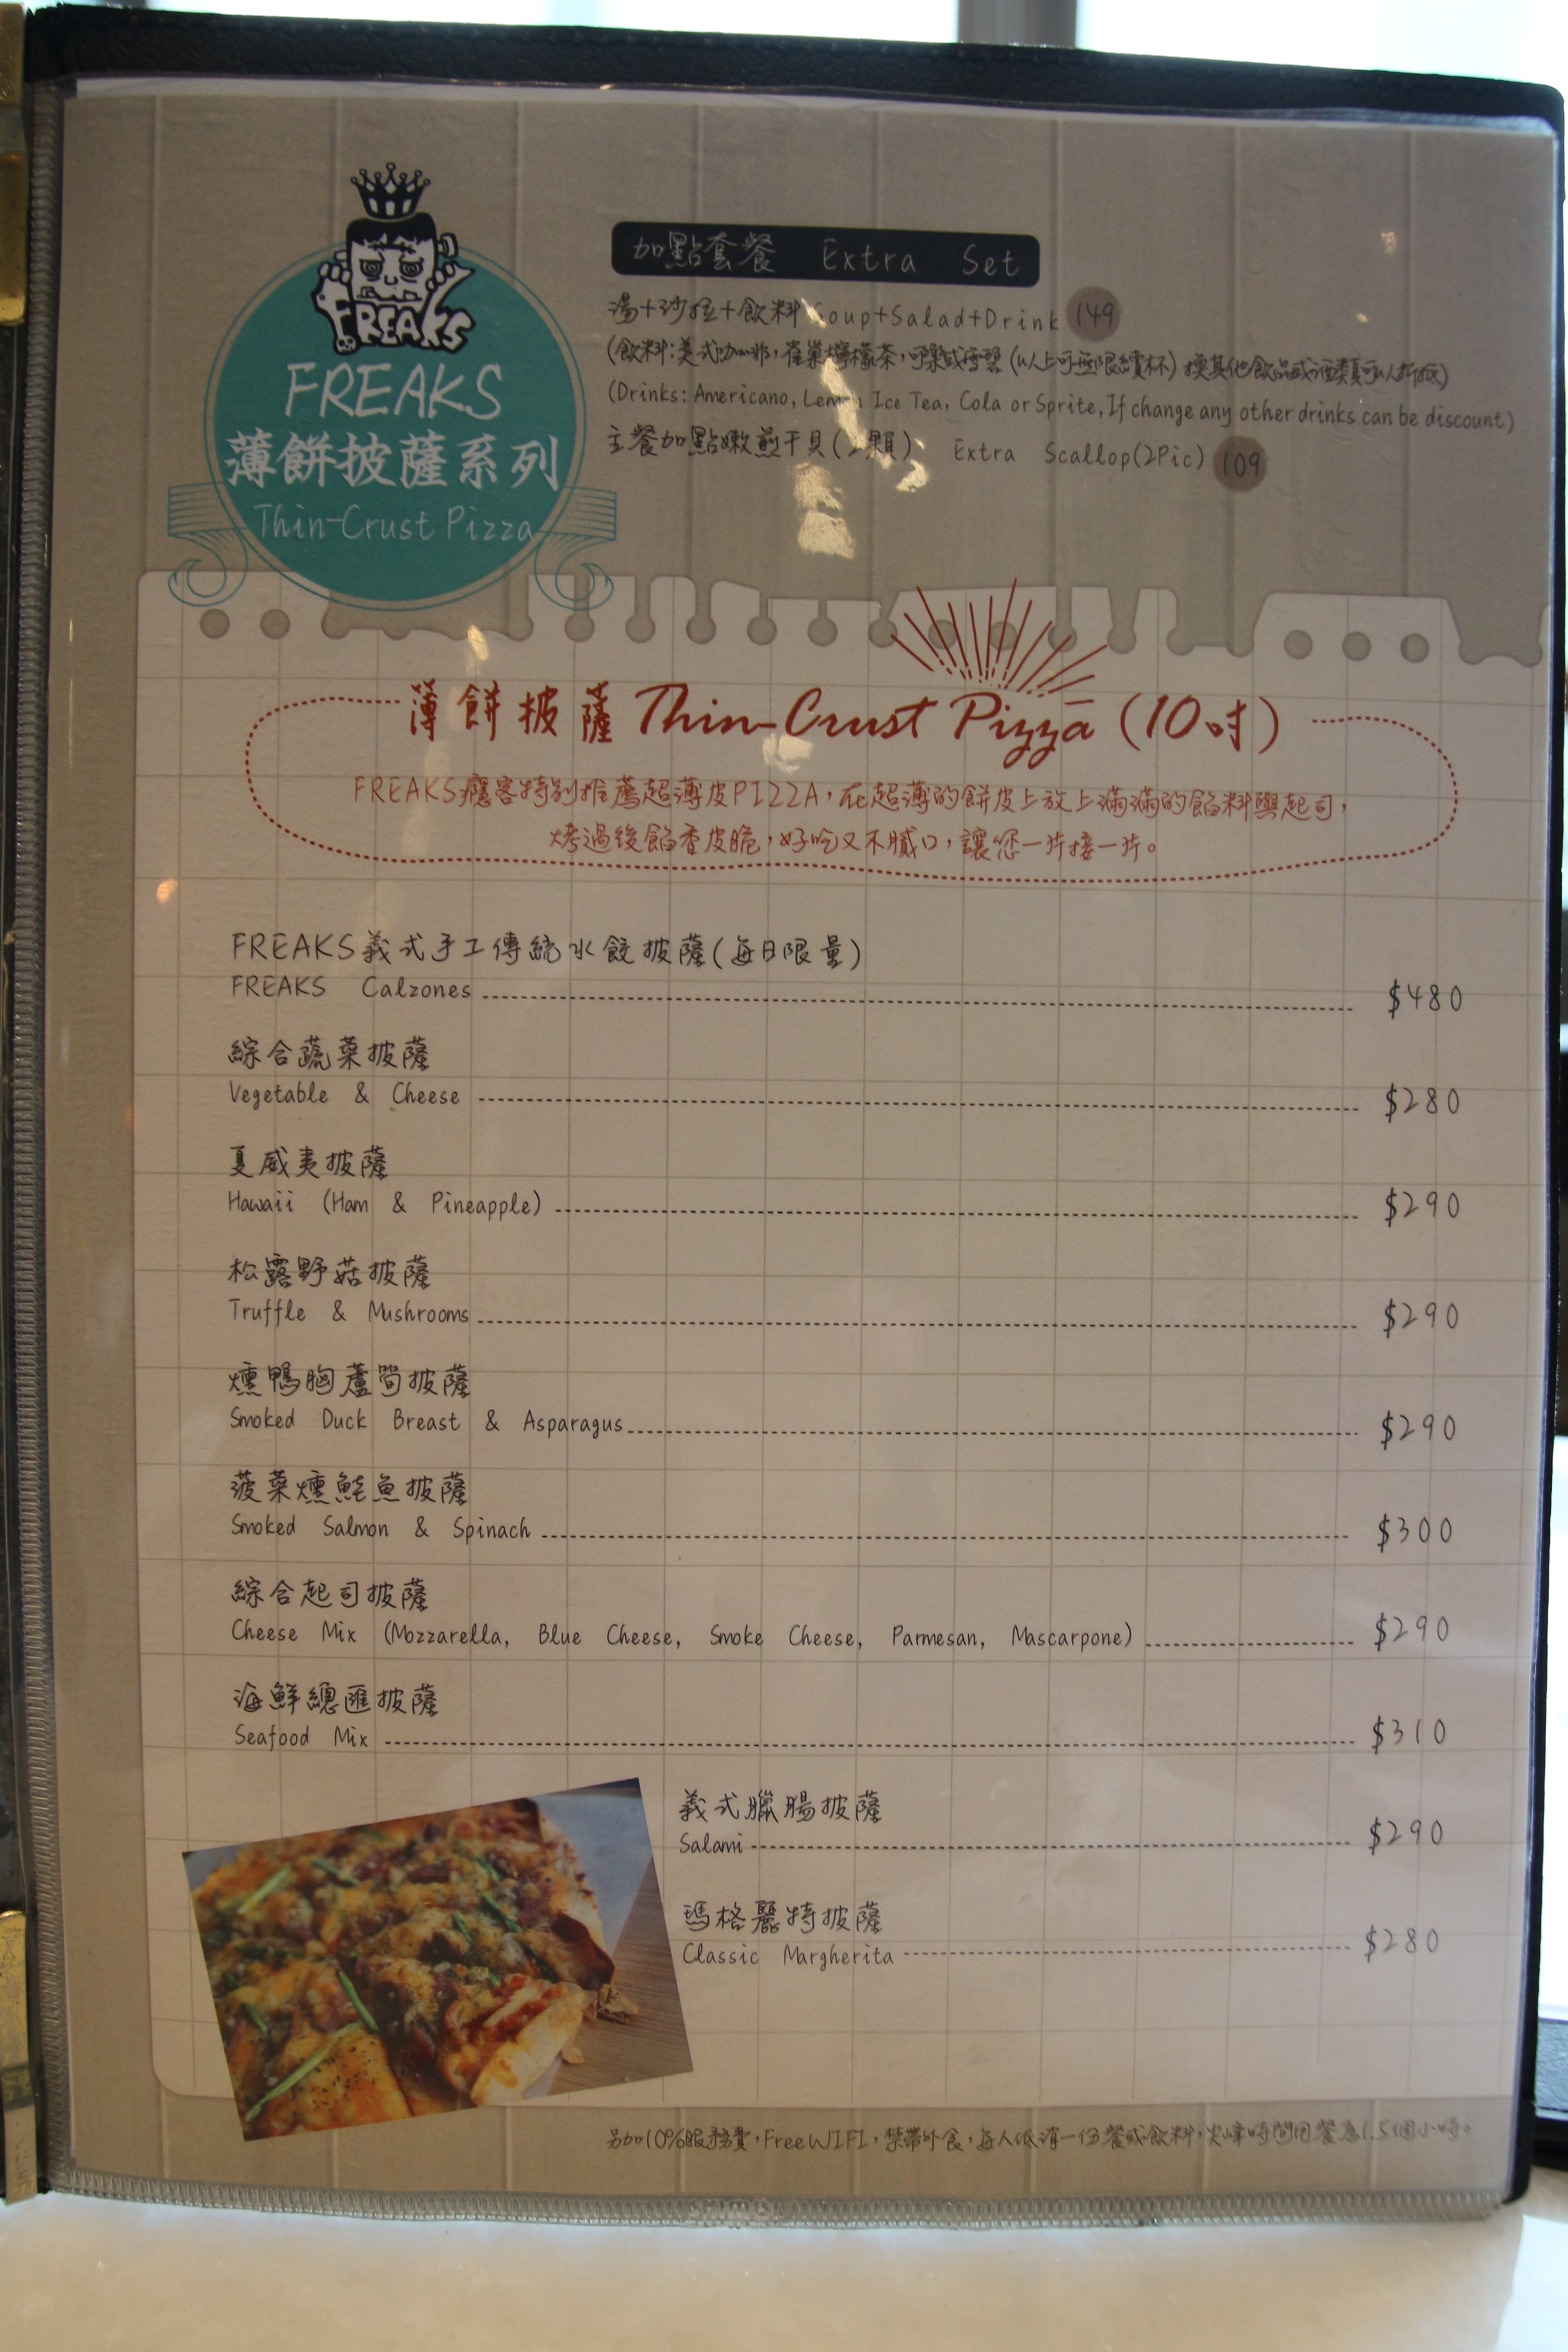 FREAKS
FREAKS
薄餅披薩系列
Thin-Crust Pizza
加點套餐 Extra Set
湯+沙拉+飲料 Soup+Salad+Drink 149
(飲料:美式咖啡,雀巢檸檬茶,可樂或雪碧(以上可無限續杯)換其他飲品或酒類可以折抵)
(Drinks: Americano, Lemon Ice Tea, Cola or Sprite, If change any other drinks can be discount)
主餐加點嫩煎干貝(2顆) Extra Scallop(2Pic) 109
薄餅披薩 Thin-Crust Pizza (10吋)
FREAKS癮客特別推薦超薄皮PIZZA,在超薄的餅皮上放上滿滿的餡料與起司,
烤過後餡香皮脆,好吃又不膩口,讓您一片接一片。
FREAKS義式手工傳統水餃披薩(每日限量)
FREAKS Calzones $480
綜合蔬菜披薩
Vegetable & Cheese $280
夏威夷披薩
Hawaii (Ham & Pineapple) $290
松露野菇披薩
Truffle & Mushrooms $290
燻鴨胸蘆筍披薩
Smoked Duck Breast & Asparagus $290
菠菜燻鮭魚披薩
Smoked Salmon & Spinach $300
綜合起司披薩
Cheese Mix (Mozzarella, Blue Cheese, Smoke Cheese, Parmesan, Mascarpone) $290
海鮮總匯披薩
Seafood Mix $310
義式臘腸披薩
Salami $290
瑪格麗特披薩
Classic Margherita $280
另加10%服務費,Free WIFI,禁帶外食,每人低消一份餐或飲料,尖峰時間用餐為1.5個小時。